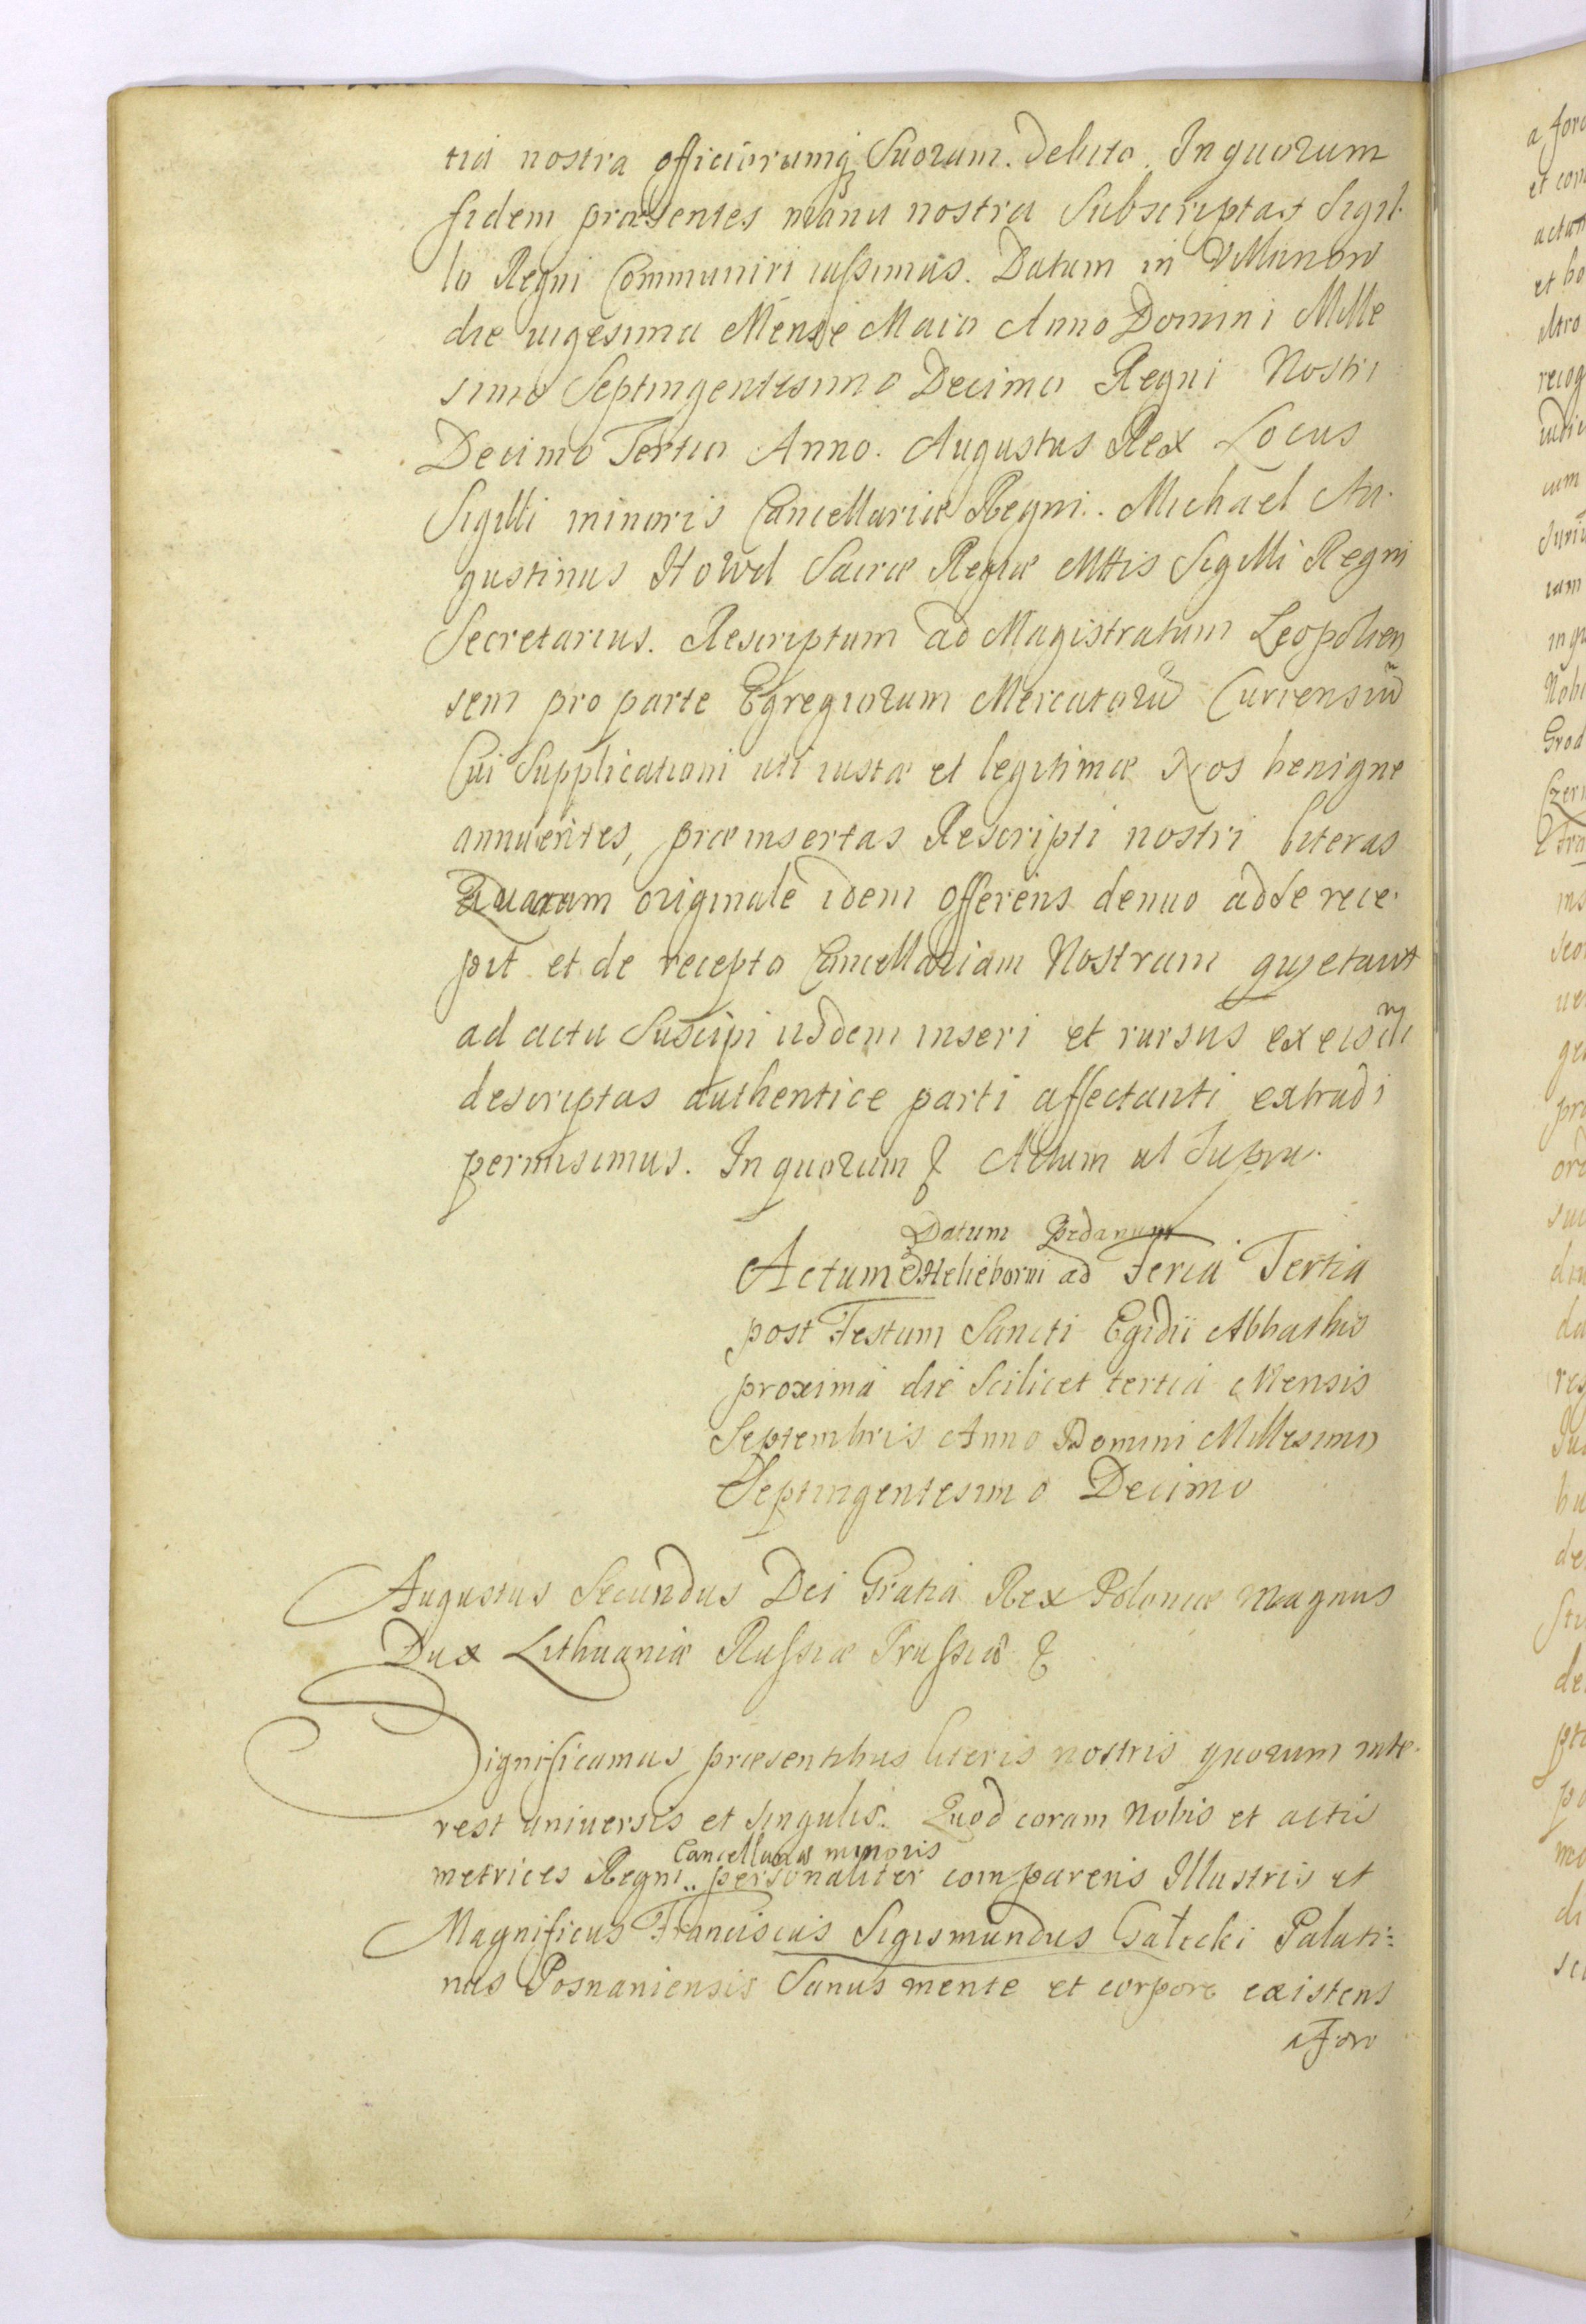 tia nostra officiorumq Suorum. debito. In quorum
fidem præsentes manu nostra Subscriptas Sigil-
lo Regni Communiri iussimus. Datum in
die uigesima Mense Maio Anno Domini Mille
simo Septingentesimo Decimo Regni Nostri
Decimo Tertio Anno. Augustus Rex Locus
Sigilli minoris Cancellariæ Regni. Michael Au-
gustinus Howel Sacræ Regiæ Mttis Sigilli Regni
Secretarius. Rescriptum ad Magistratum Leopolien
sem pro parte Egregiorum Mercatorũ Curiensiũ
Cui Supplicationi uti iustæ et legitimæ Nos benigne
annuentes, præinsertas Rescripti nostri literas
Quarum originale idem offerens denuo ad se rece-
pit et de recepto Cancellariam Nostram quietauit
ad acta Suscipi iisdem inseri et rursus ex eisdẽ
descriptas authentice parti affectanti extradi
permisimus. In quorum & Actum ut Supra.
Datum
Actum ad Feria Tertia
post Festum Sancti Egidii Abbathis
proxima die Scilicet tertia Mensis
Septembris Anno Domini Millesimo
Septingentesimo Decimo
Augustus Secundus Dei Gratia Rex Poloniæ Magnus
Dux Lithuaniæ Russiæ Prussiæ &
Significamus præsentibus literis nostris quorum inte-
rest uniuersis et singulis. Quod coram Nobis et actis
Cancellariæ minoris
metrices Regni.. personaliter comparens Illustris et
Magnificus Franciscus Sigismundus Gałecki Palati=
nus Posnaniensis Sanus mente et corpore existens
a Foro
a foro
et
et